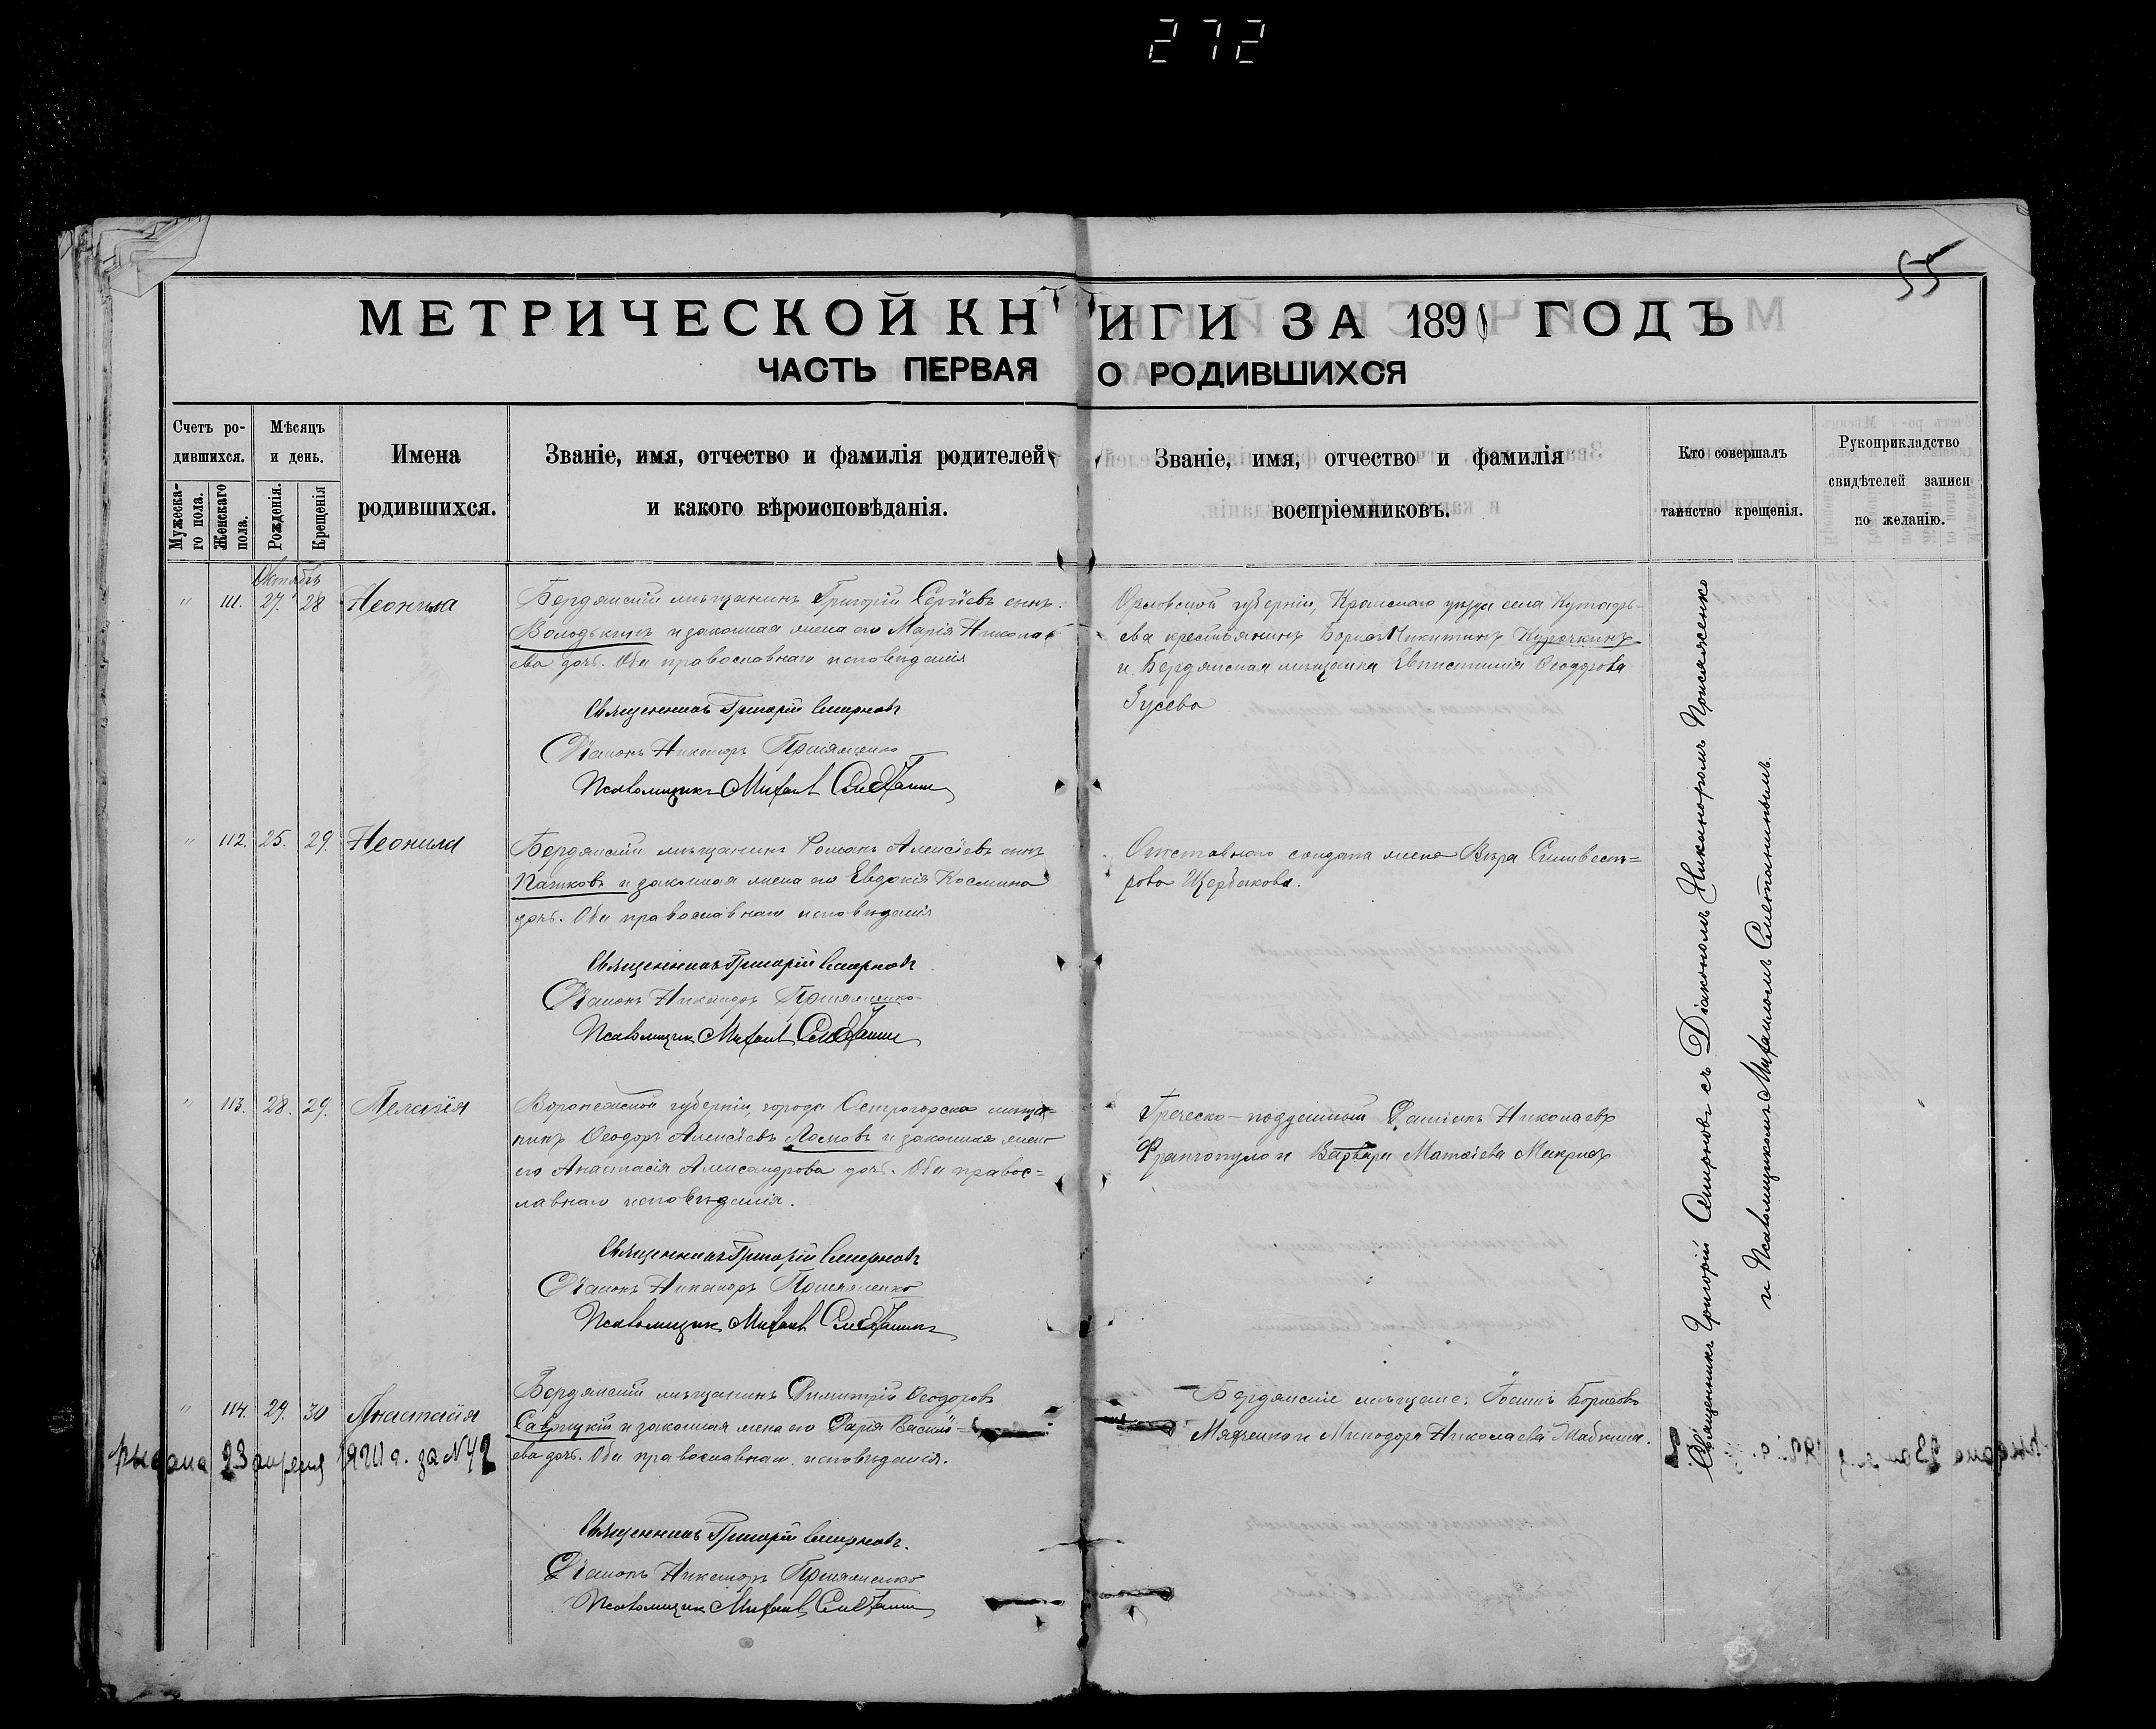 272
55
МЕТРИЧЕСКОЙ КНИГИ ЗА 1891 ГОДЪ
ЧАСТЬ ПЕРВАЯ О РОДИВШИХСЯ
Счетъ ро-
дившихся.
Мужеска-
го пола.
Женскаго
пола.
Мѣсяцъ
и день.
Рожденія.
Крещенія
Имена
родившихся.
Званіе, имя, отчество и фамилія родителей
и какого вѣроисповѣданія.
Званіе, имя, отчество и фамилія
воспріемниковъ.
Кто совершалъ
таинство крещенія.
Рукоприкладство
свидѣтелей записи
по желанію.
Октябрь
" 111. 27. 28 Неонила
Бердянскій мѣщанинъ Григорій Сергіевъ сынъ
Володькинъ и законная жена его Марія Никола-
ева дочь. Оба православнаго исповѣданія
Священникъ Григорій Смирновъ
Діаконъ Никаноръ Присяженко
Псаломщикъ Михаилъ Сметанинъ
Орловской губерніи, уѣзда села
ева крестьянинъ Борисъ Никитинъ Курочкинъ
и Бердянская мѣщанка Евпистимія Ѳеодорова
Гусева
" 112. 25. 29. Неонила
Бердянскій мѣщанинъ Романъ Алексіевъ сынъ
Пашковъ и законная жена его Евдокія Космина
дочь. Оба православнаго исповѣданія
Священникъ Григорій Смирновъ
Діаконъ Никаноръ Присяженко
Псаломщикъ Михаилъ Сметанинъ
Отставного солдата жена Вѣра Силивест=
рова Щербакова.
" 113. 28. 29. Пелагія
Воронежской губерніи, города Острогорска мѣща-
нинъ Ѳеодоръ Алексіевъ Ломовъ и законная жена
его Анастасія Александрова дочь. Оба правос=
лавнаго исповѣданія.
Священникъ Григорій Смирновъ
Діаконъ Никаноръ Присяженко
Псаломщикъ Михаилъ Сметанинъ
Греческо-подданный Даміанъ Николаевъ
Франгопуло и Варвара Матѳіева Макрисъ
" 114. 29. 30 Анастасія
Бердянскій мѣщанинъ Димитрій Ѳеодоровъ
Саврицкій и законная жена его Дарія Васлі=
ева дочь. Оба православнаго исповѣданія.
Выдана 23 апреля 1920 г. за № 42
Священникъ Григорій Смирновъ.
Діаконъ Никаноръ Присяженко
Псаломщикъ Михаилъ Сметанинъ
Бердянскіе мѣщане: Іоаннъ Борисовъ
и Минодора Николаева
Священникъ Григорій Смирновъ съ Діакономъ Никаноромъ Присяженко
и Псаломщикомъ Михаиломъ Сметанинымъ.